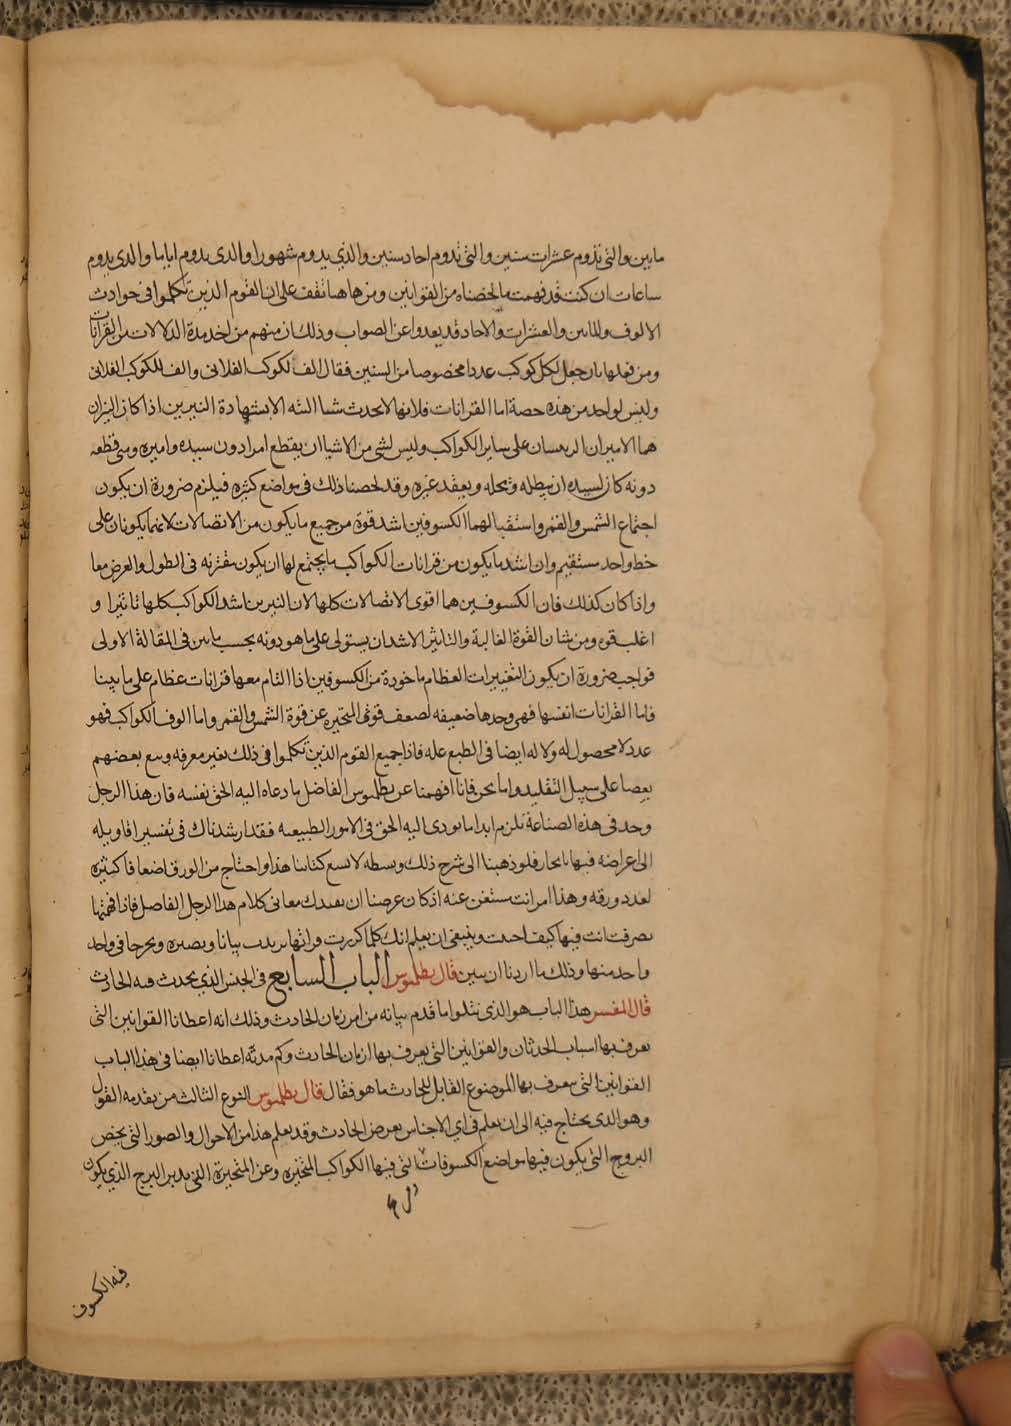 مايين والتى تدوم عشرات سنين والتى تدوم احاد سنين والذي يدوم شهورا والدى يدوم اياما والدى يدوم
ساعات ان كنت قد فهمت مالخصناه من القوانين ومن هاهنا تقف على ان القوم الذين تكلموا فى حوادث
الالوف والمايين والعشرات والاحاد قد بعدوا عن الصواب وذلك ان منهم من اخذ مدة الدلالات من القرانات
ومن فعلها بان جعل لكل كوكب عددا مخصوصا من السنين فقال الف لكوكب الفلانى والف للكوكب الفلانى
وليس لواحد من هذه حصة اما القرانات فلانها لا تحدث شيا البته الا بشهادة النيرين اذا كان النيران
هما الاميران الريسان على ساير الكواكب وليس لشى من الاشيا ان يقطع امرا دون سيده واميره ومتى قطعه
دونه كان لسيده ان يبطله ويحله ويعقد غيره وقد لخصنا ذلك فى مواضع كثيره فيلزم ضرورة ان يكون
اجتماع الشمس والقمر واستقبالهما الكسوفين اشد قوة من جميع ما يكون من الاتصالات لانهما يكونان على
خط واحد مستقيم وان اشد ما يكون من قرانات الكواكب ما يجتمع لها ان يكون مقترنه فى الطول والعرض معا
واذا كان كذلك فان الكسوفين هما اقوى الاتصالات كلها لان النيرين اشد الكواكب كلها تاثيرا و
اغلب قوه ومن شان القوة الغالبة والتاثير الاشد ان يستولى على ما هو دونه بحسب ما بين فى المقالة الاولى
فواجب ضرورة ان يكون التغييرات العظام ماخودة من الكسوفين اذا التام معها قرانات عظام على ما بينا
فاما القرانات انفسها فهى وحدها ضعيفه لضعف قوى المتحيره عن قوة الشمس والقمر واما الوف الكواكب فهو
عدد لا محصول له ولا له ايضا فى الطبع عله فاذا جميع القوم الذين تكلموا فى ذلك بغير معرفه وتبع بعضهم
بعضا على سبيل التقليد واما نحن فانا افهمنا عن بطلميوس الفاضل ما دعاه اليه الحق نفسه فان هذا الرجل
وحد فى هذه الصناعة تلزم ابدا ما يودى اليه الحق فى الامور الطبيعيه فقد ارشدناك فى تفسير اقاويله
الى اغراضه فيها بايجاز فلو ذهبنا الى شرح ذلك وبسطه لا تسع كتابنا هذا واحتاج من الورق اضعافا كثيره
لعدد ورقه وهذا امر انت مستغن عنه اذ كان غرضنا ان نفيدك معانى كلام هذا الرجل الفاضل فاذا فهمتها
تصرفت انت فيها كيف احببت وينبغى ان يعلم انك كلما كررت قراتها تزيدت بيانا وبصيره وتخرجا فى واحد
واحد منها وذلك ما اردنا ان نبين قال بطلميوس الباب السابع فى الجنس الذي يحدث فيه الحادث
قال المفسر هذا الباب هو الذى يتلوا ما قدم بيانه من امر زمان الحادث وذلك انه اعطانا القوانين التى
نعرف بها اسباب الحدثان والقوانين التى يعرف بها ازمان الحادث وكم مدته اعطانا ايضا فى هذا الباب
القوانين التى يعرف بها الموضوع القابل للحادث ما هو فقال قال بطلميوس النوع الثالث من تقدمه القول
وهو الدى يحتاج فيه الى ان نعلم فى اي الاجناس يعرض الحادث وقد يعلم هذا من الاحوال والصور التى تخص
البروج التى يكون فيها مواضع الكسوفات التى فيها الكواكب المتحيره وغير المتحيرة التى تدبر البرج الذي يكون
فيه الكسوف